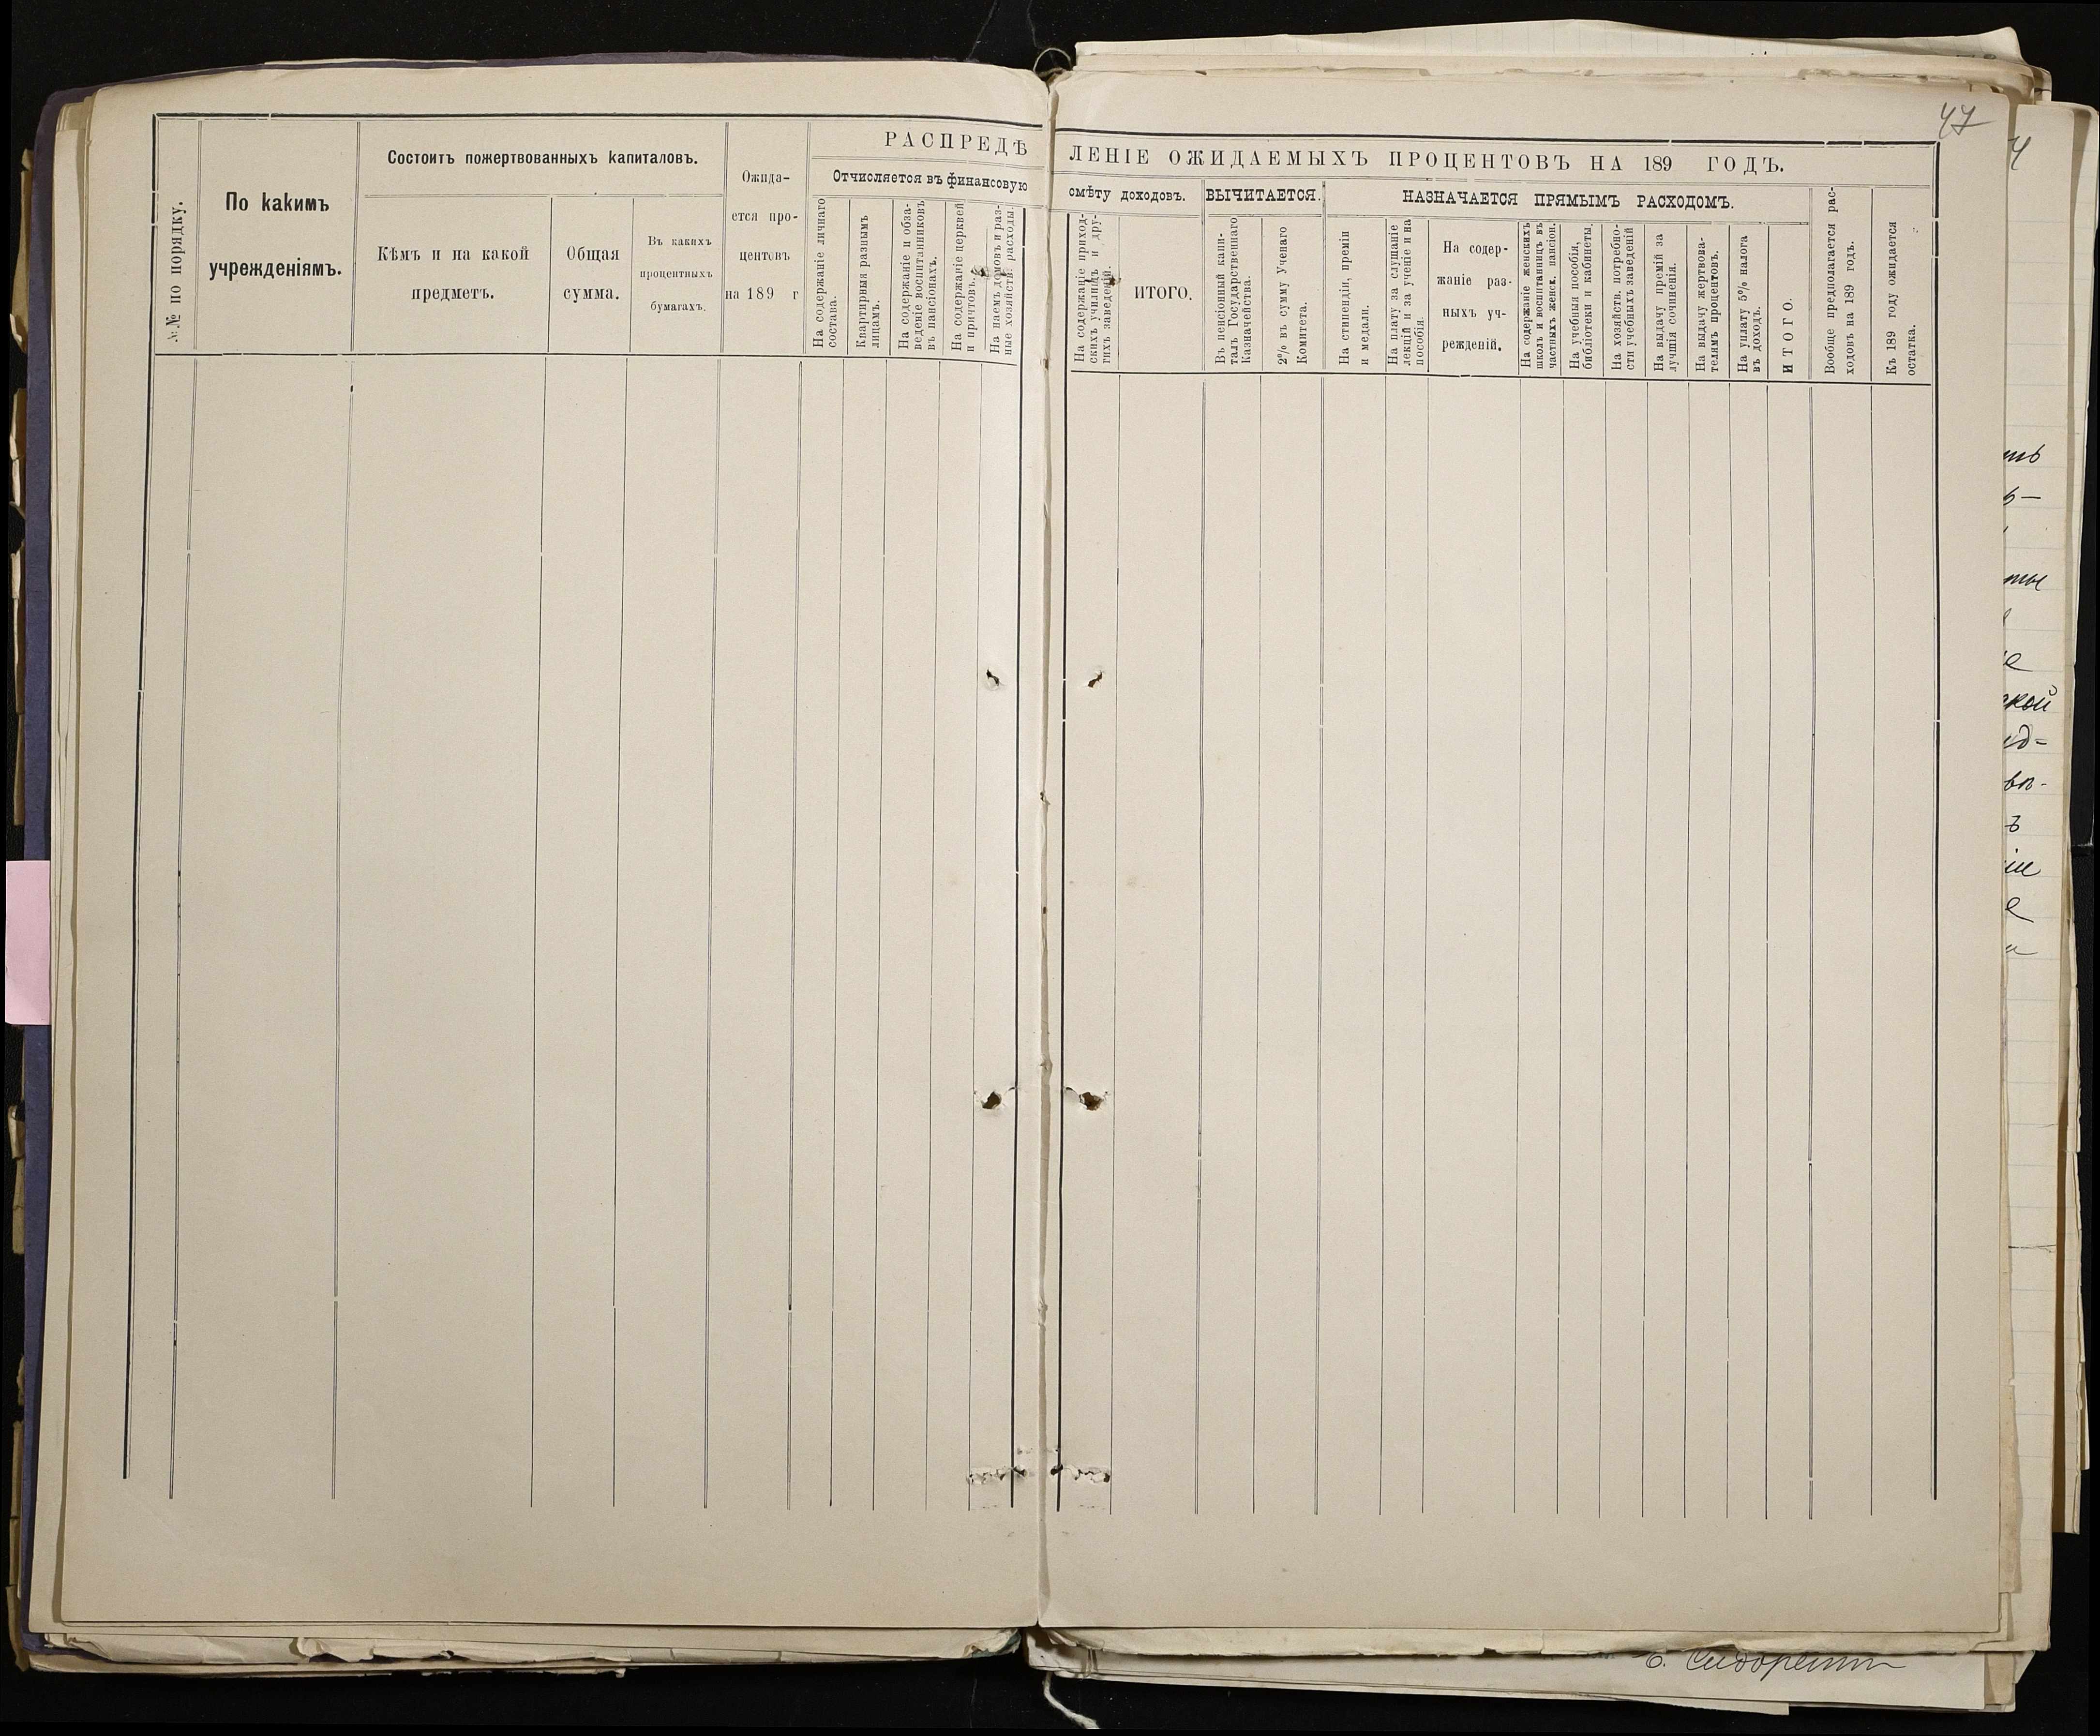 47
РАСПРЕДѢ
ЛЕНІЕ ОЖИДАЕМЫХЪ ПРОЦЕНТОВЪ НА 189 ГОДЪ.
№№ по порядку.
По какимъ
учрежденіямъ.
Состоитъ пожертвованныхъ капиталовъ.
Кѣмъ и на какой
предметъ.
Общая
сумма.
Въ какихъ
процентныхъ
бумагахъ.
Ожида-
ется про-
центовъ
на 189 г
Отчисляется въ финансовую
На содержаніе личнаго
состава.
Квартирныя разнымъ
лицамъ.
На содержаніе и обза-
веденіе воспитанниковъ
въ пансіонахъ.
На содержаніе церквей
и причтовъ.
На наемъ домовъ и раз-
ные хозяйств. расходы.
смѣту доходовъ.
На содержаніе приход-
скихъ училищъ и дру-
гихъ заведеній.
ИТОГО.
ВЫЧИТАЕТСЯ.
Въ пенсіонный капи-
талъ Государственнаго
Казначейства.
2% въ сумму Ученаго
Комитета.
НАЗНАЧАЕТСЯ ПРЯМЫМЪ РАСХОДОМЪ.
На стипендіи, преміи
и медали.
На плату за слушаніе
лекцій и за ученіе и на
пособія.
На содер-
жаніе раз-
ныхъ уч-
режденій.
На содержаніе женскихъ
школъ и воспитанницъ въ
частныхъ женск. пансіон.
На учебныя пособія,
библіотеки и кабинеты.
На хозяйств. потребно-
сти учебныхъ заведеній
На выдачу премій за
лучшія сочиненія.
На выдачу жертвова-
телямъ процентовъ.
На уплату 5% налога
въ доходъ.
ИТОГО.
Вообще предполагается рас-
ходовъ на 189 годъ.
Къ 189 году ожидается
остатка.
ть
ты
е
ской
ид-
ъ
іе
е